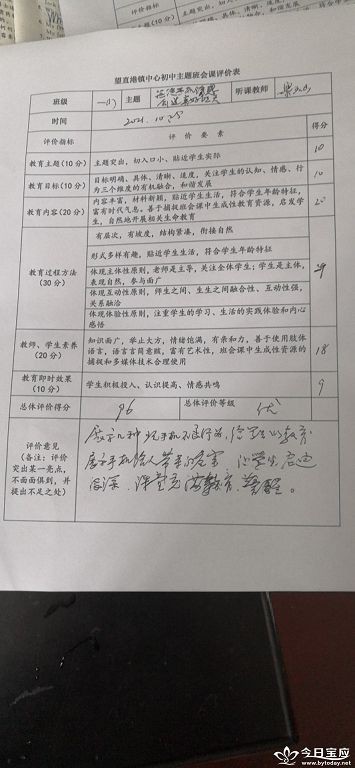 评价指标
望直港镇中心初中主题班会课评价表
班级 一(1) 主题 听课教师
时间 2021.10.25
评价指标 评价要素 得分
教育主题(10分) 主题突出，切入口小、贴近学生实际 10
教育目标(10分) 目标明确、具体、清晰、适度，关注学生的认知、情感、行 10
为三个维度的有机融合，和谐发展
教育内容(20分) 内容丰富，材料新颖，贴近学生生活，符合学生年龄特征， 20
富有时代气息，善于捕捉班会课中生成性教育资源，启发学
生，自然地开展相关生命教育
有层次，有坡度，结构紧凑，衔接自然
形式多样有趣，贴近学生生活，符合学生年龄特征
教育过程方法
(30分)
体现主体性原则，老师是主导，关注全体学生；学生是主体，
表现自然，参与面广
体现互动性原则，师生之间、生生之间融合性、互动性强，
关系融洽
体现体验性原则，注重学生的学习、生活的实践体验和内心
感悟
教师、学生素养
(20分)
知识面广，举止大方，情绪饱满，有亲和力，善于使用肢体 18
语言，语言言简意赅，富有艺术性，班会课中生成性资源的
捕捉和多媒体技术合理使用
教育即时效果
(10分)
学生积极投入、认识提高、情感共鸣 9
总体评价得分 96 总体评价等级 优
评价意见
(备注：评价
突出某一亮点，
不面面俱到，并
提出不足之处)
展示几种玩手机不良行为，给学生以教育
展示手机给人带来的危害，让学生启迪
深，课堂充满教育、警醒。
今日宝应
www.bytoday.net